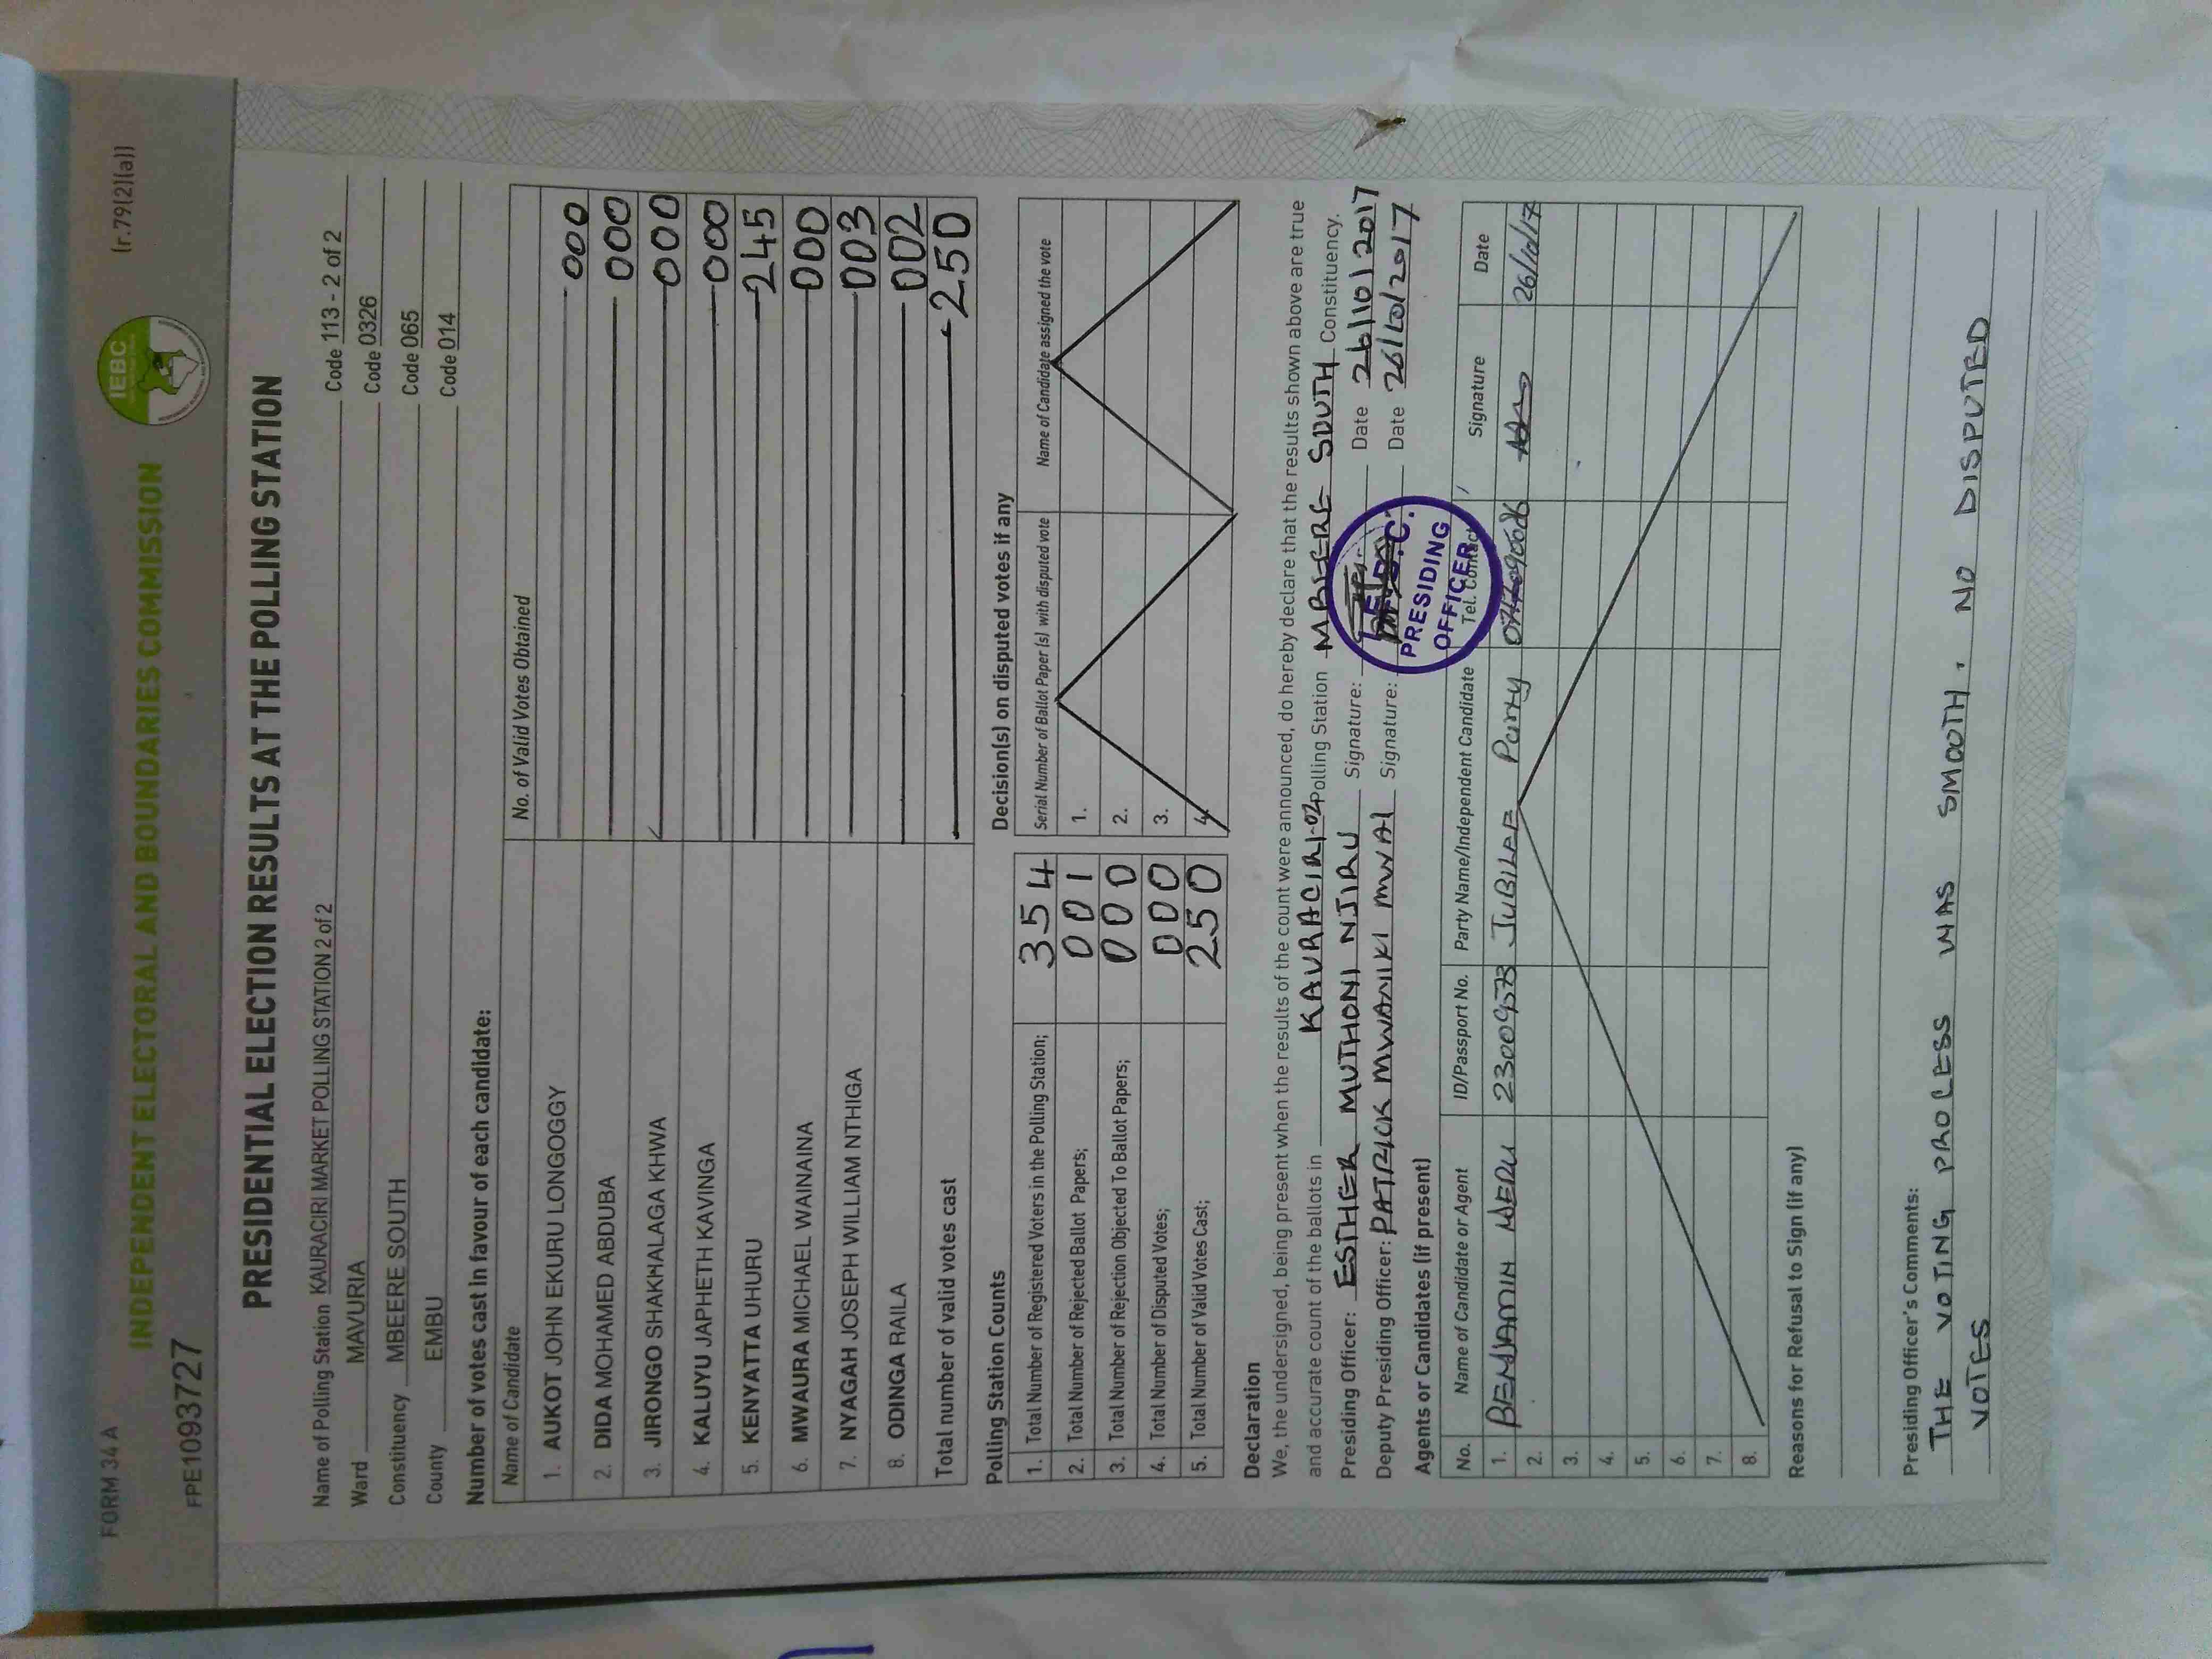 FORM 34 A
(r.79(2)(a))
INDEPENDENT ELECTORAL AND BOUNDARIES COMMISSION
IEBC
FPE1093727
PRESIDENTIAL ELECTION RESULTS AT THE POLLING STATION
Name of Polling Station KAURACIRI MARKET POLLING STATION 2 of 2 Code 113 - 2 of 2
Ward MAVURIA Code 0326
Constituency MBEERE SOUTH Code 065
County EMBU Code 014
Number of votes cast in favour of each candidate:
Name of Candidate No. of Valid Votes Obtained
1. AUKOT JOHN EKURU LONGOGGY 000
2. DIDA MOHAMED ABDUBA 000
3. JIRONGO SHAKHALAGA KHWA 000
4. KALUYU JAPHETH KAVINGA 000
5. KENYATTA UHURU 245
6. MWAURA MICHAEL WAINAINA 000
7. NYAGAH JOSEPH WILLIAM NTHIGA 003
8. ODINGA RAILA 002
Total number of valid votes cast 250
Polling Station Counts
1. Total Number of Registered Voters in the Polling Station; 354
2. Total Number of Rejected Ballot Papers; 001
3. Total Number of Rejection Objected To Ballot Papers; 000
4. Total Number of Disputed Votes; 000
5. Total Number of Valid Votes Cast; 250
Decision(s) on disputed votes if any
Serial Number of Ballot Paper (s) with disputed vote Name of Candidate assigned the vote
1.
2.
3.
4.
Declaration
We, the undersigned, being present when the results of the count were announced, do hereby declare that the results shown above are true
and accurate count of the ballots in KAURACIRI-02 Polling Station MBEERE SOUTH Constituency.
Presiding Officer: ESTHER MUTHONI NJIRU Signature: Date 26/10/2017
Deputy Presiding Officer: PATRICK MWANIKI MWAI Signature: Date 26/10/2017
I.E.B.C.
PRESIDING
OFFICER
Agents or Candidates (if present)
No. Name of Candidate or Agent ID/Passport No. Party Name/Independent Candidate Tel. Contact Signature Date
1. BENJAMIN WERU JUBILEE Party 26/10/17
2.
3.
4.
5.
6.
7.
8.
Reasons for Refusal to Sign (if any)
Presiding Officer's Comments:
THE VOTING PROCESS WAS SMOOTH. NO DISPUTED
VOTES